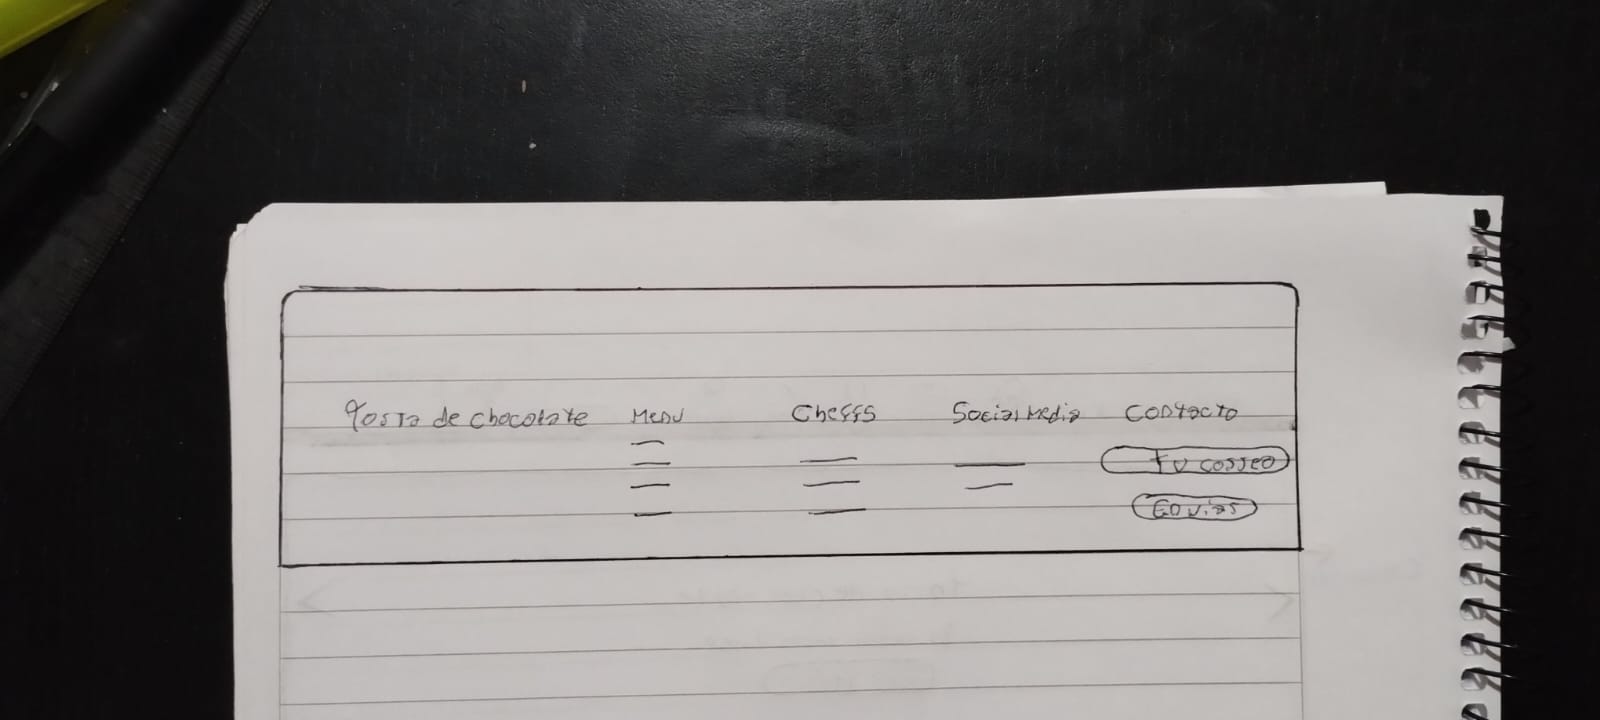 Tosta de chocolate Menu Cheffs Social Media Contacto
Tu correo
Enviar